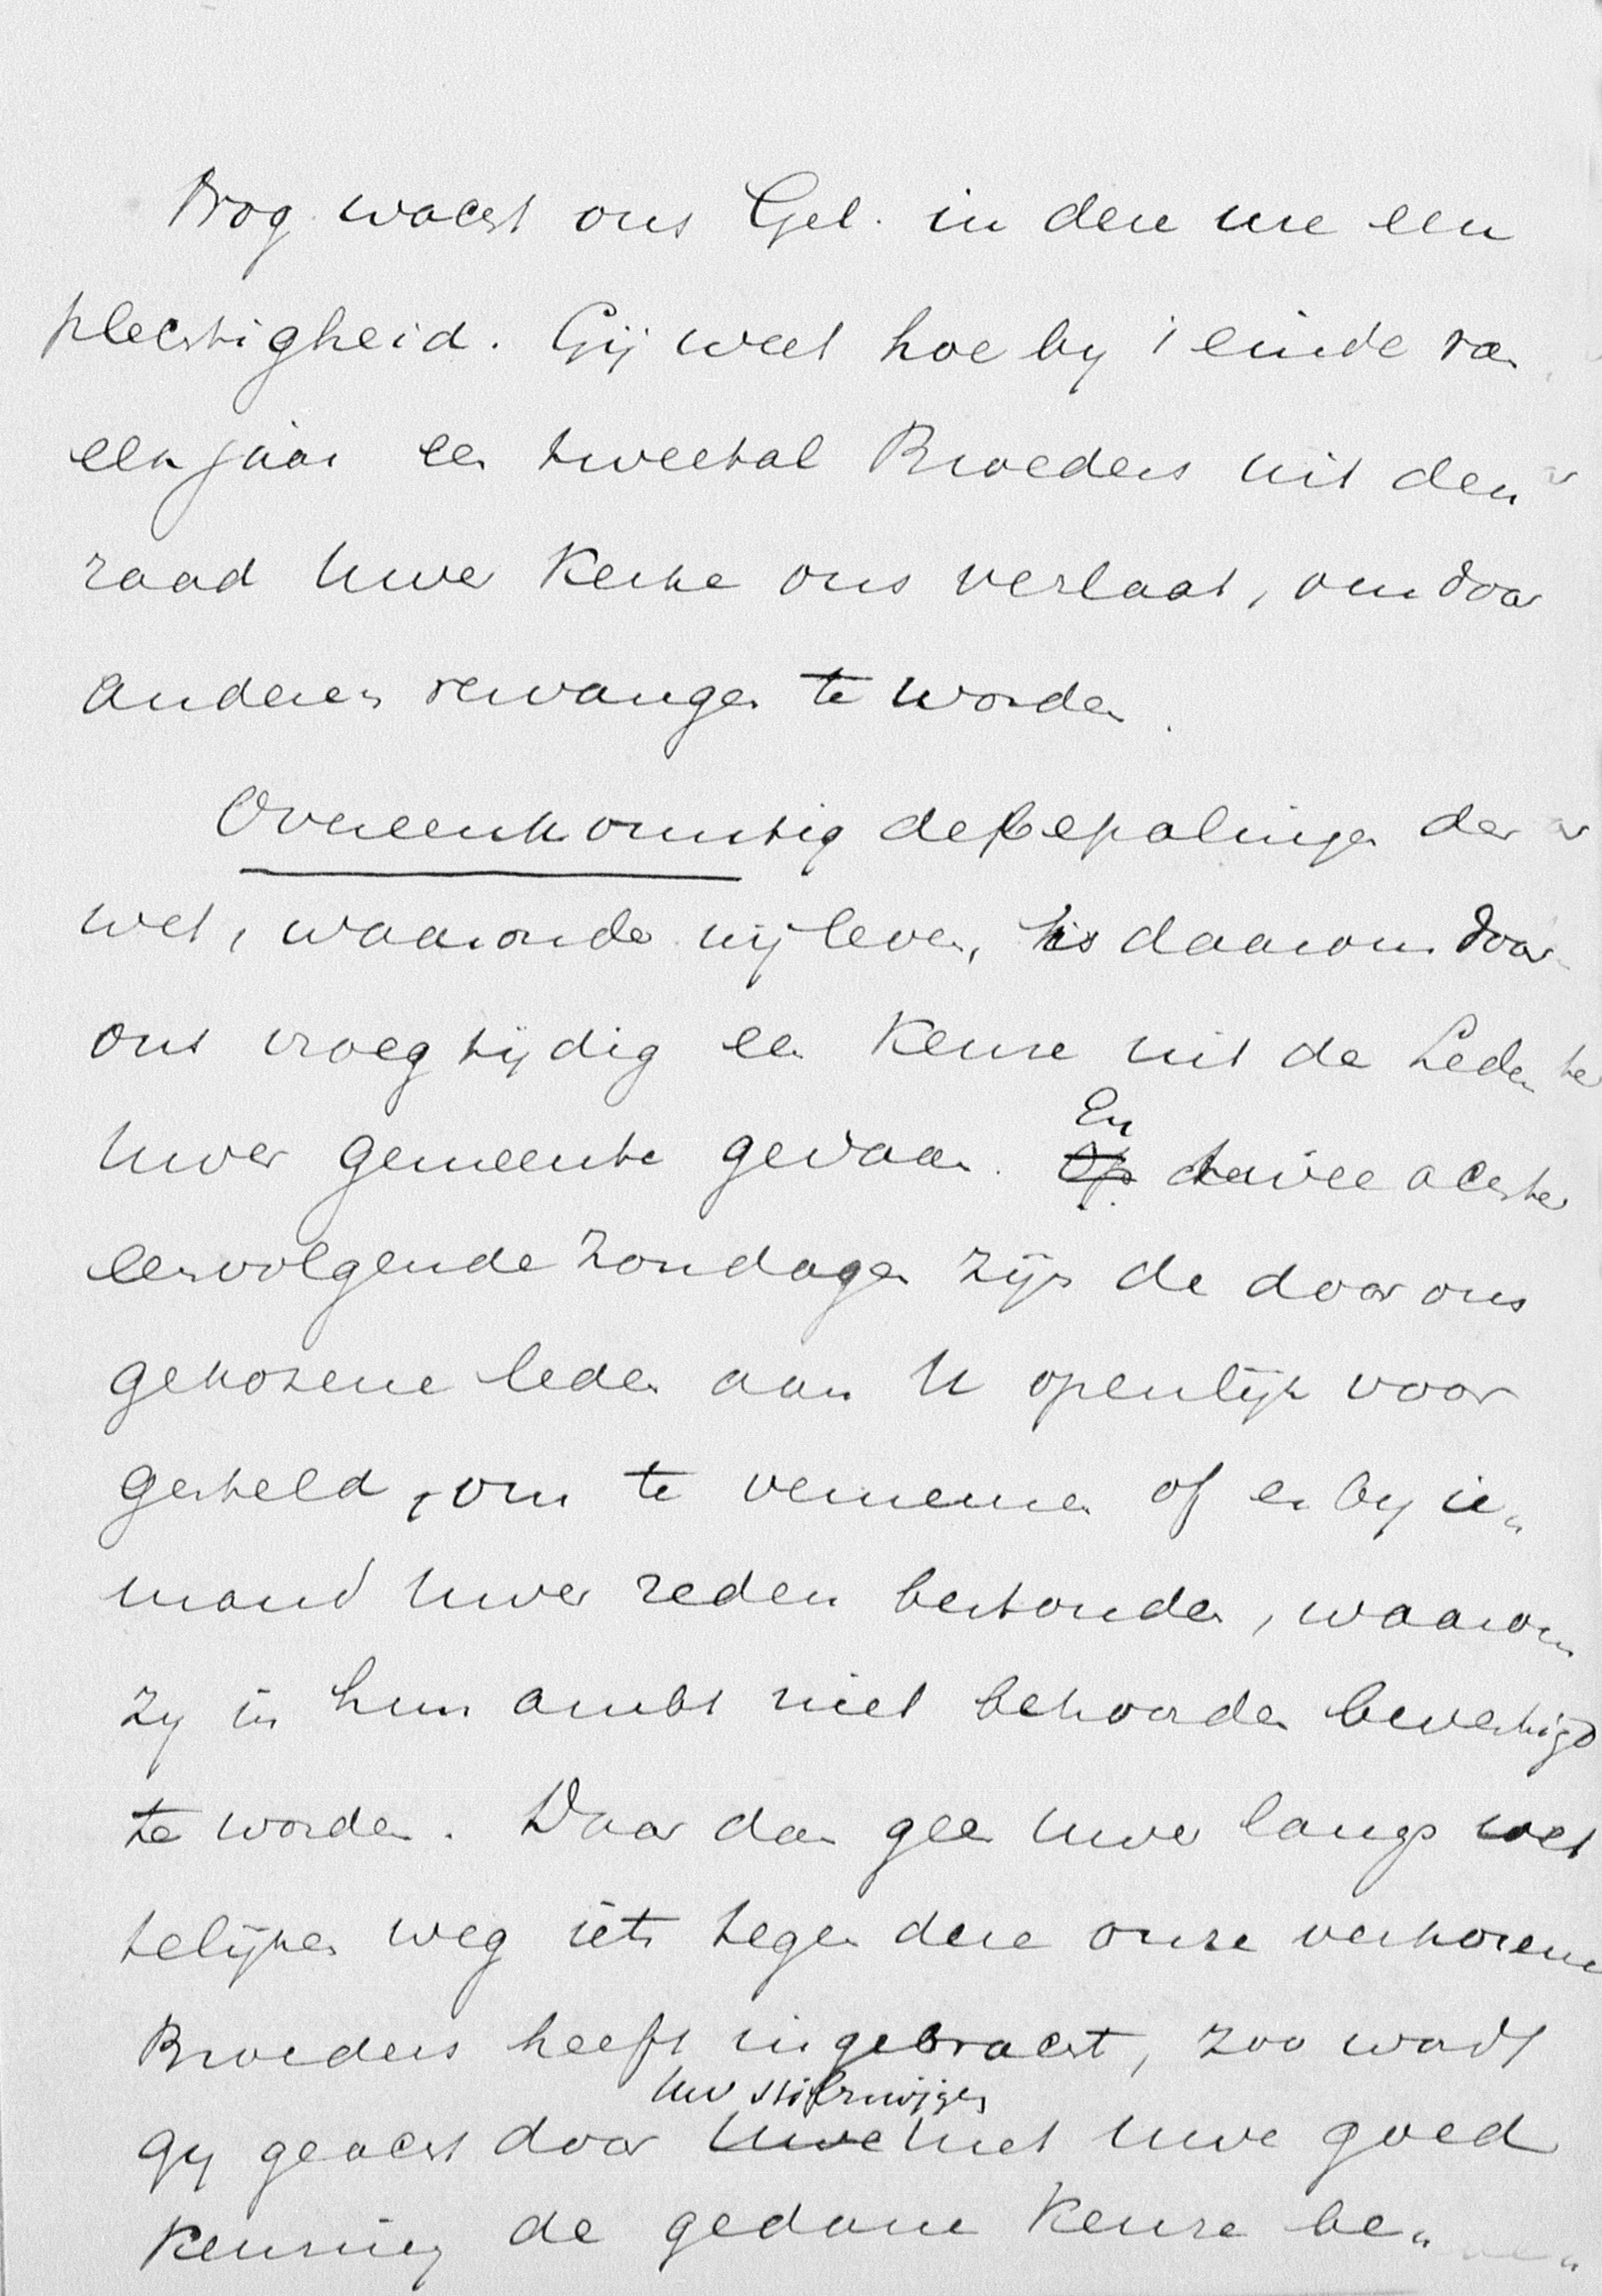 Nog wacht ons Gel. in deze ure een
plechtigheid. Gij weet hoe by 't einde van
elk jaar een tweetal Broeders uit den
raad Uwer Kerke ons verlaat, om door
anderen vervangen te worden.
Overeenkomstig de bepalingen der
wet, waaronder wij leven, is daarom door
ons vroegtijdig een Keuze uit de Leden
Uwer gemeente gedaan. En
Op twee achter
eenvolgende Zondagen zijn de door ons
gekozene leden aan U openlijk voor
gesteld, om te vernemen of er by ie„
mand Uwer reden bestonden, waarom
zy in hun ambt niet behoorden bevestigd
te worden. Daar dan geen Uwer langs wet
telijken weg iets tegen deze onze verkorene
Broeders heeft ingebracht, zoo wordt
Uw stilzwijgen
gy geacht door Uwe met Uwe goed
keuring de gedane Keuze be„